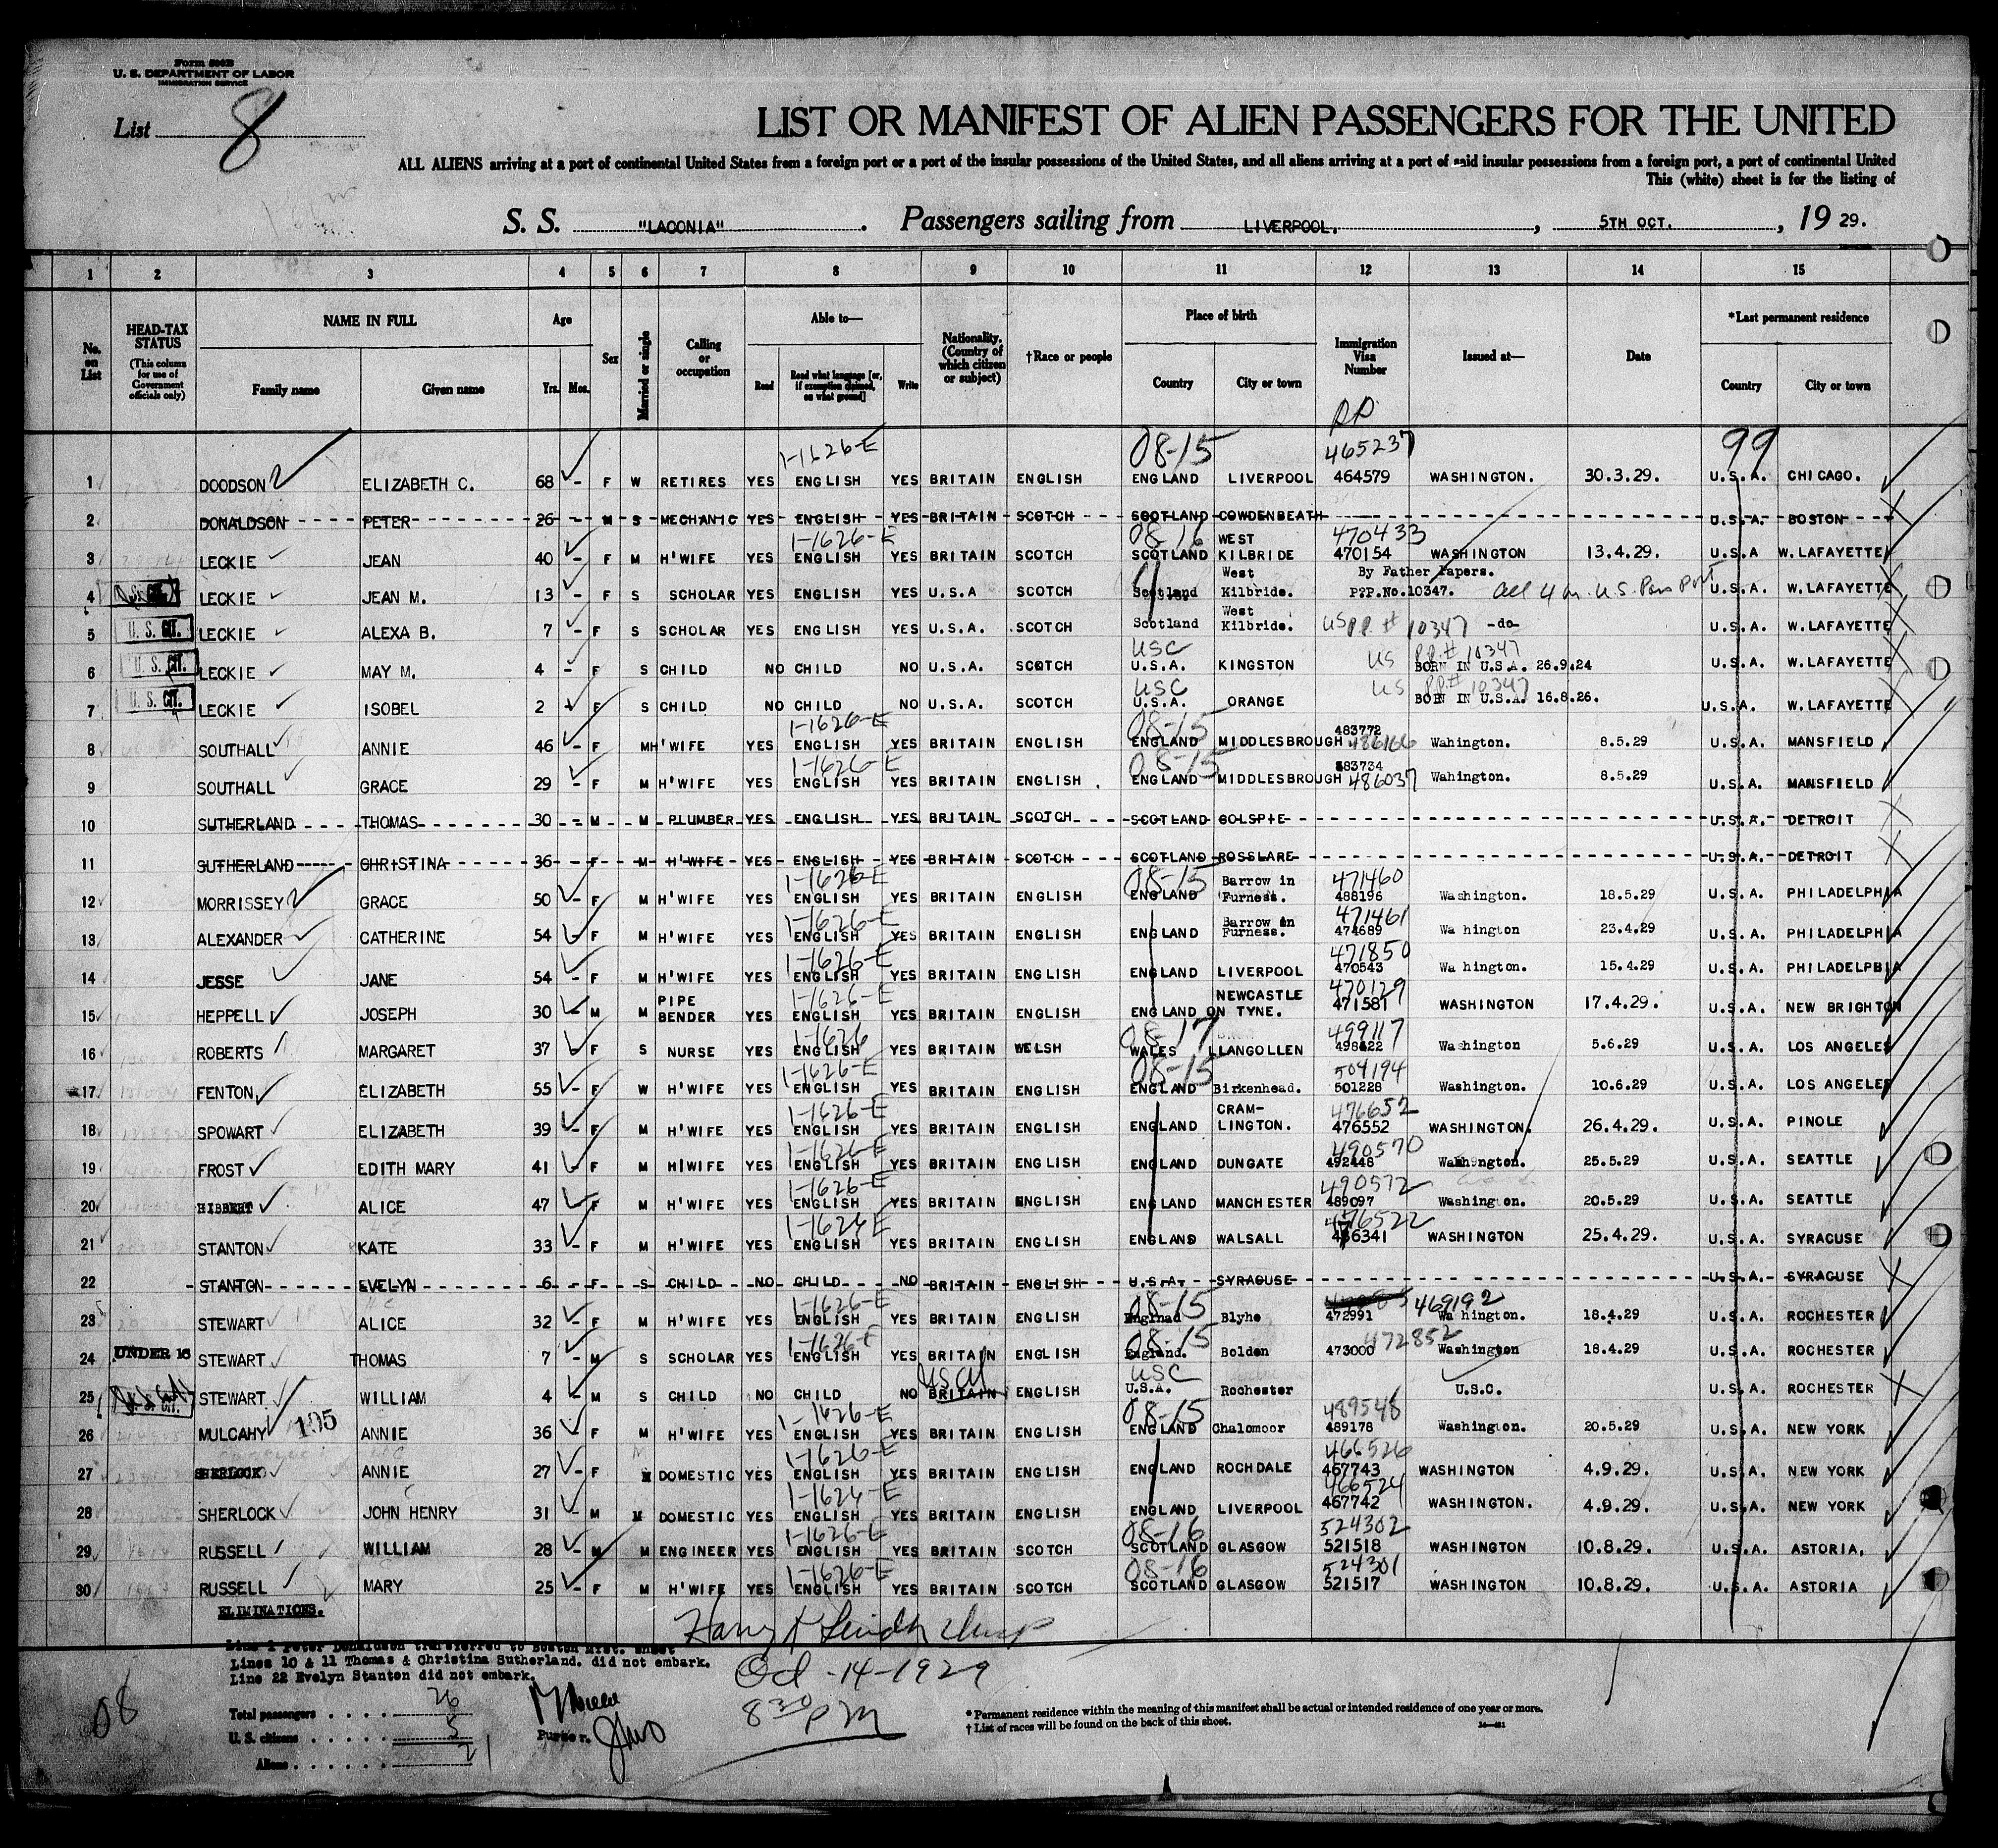 Form 500B
U. S. DEPARTMENT OF LABOR
IMMIGRATION SERVICE
List 8
LIST OR MANIFEST OF ALIEN PASSENGERS FOR THE UNITED
ALL ALIENS arriving at a port of continental United States from a foreign port or a port of the insular possessions of the United States, and all aliens arriving at a port of said insular possessions from a foreign port, a port of continental United
This (white) sheet is for the listing of
S. S. "LACONIA". Passengers sailing from LIVERPOOL., 5TH OCT., 19 29.
1 2 3 4 5 6 7 8 9 10 11 12 13 14 15
No. on List
HEAD-TAX STATUS (This column for use of Government officials only)
NAME IN FULL Family name Given name
Age Yrs. Mos.
Sex
Married or single
Calling or occupation
Able to— Read Read what language [or, if exemption claimed, on what ground] Write
Nationality. (Country of which citizen or subject)
†Race or people
Place of birth Country City or town
Immigration Visa Number
Issued at—
Date
*Last permanent residence Country City or town
PP
1-1626-E 08-15 465237 99
1 DOODSON ELIZABETH C. 68 - F W RETIRES YES ENGLISH YES BRITAIN ENGLISH ENGLAND LIVERPOOL 464579 WASHINGTON. 30.3.29. U.S.A. CHICAGO.
2 DONALDSON PETER 26 - M S MECHANIC YES ENGLISH YES BRITAIN SCOTCH SCOTLAND COWDENBEATH U.S.A BOSTON
1-1626-E 08-16 WEST 470433
3 LECKIE JEAN 40 - F M H'WIFE YES ENGLISH YES BRITAIN SCOTCH SCOTLAND KILBRIDE 470154 WASHINGTON 13.4.29. U.S.A W.LAFAYETTE
West By Father Papers.
4 LECKIE JEAN M. 13 - F S SCHOLAR YES ENGLISH YES U.S.A SCOTCH Scotland Kilbride. P?P.No.10347. all 4 on U.S. Pass Port U.S.A. W.LAFAYETTE
West
5 U. S. CIT. LECKIE ALEXA B. 7 - F S SCHOLAR YES ENGLISH YES U.S.A. SCOTCH Scotland Kilbride. US P.P. # 10347 -do- U.S.A. W.LAFAYETTE
USC US P.P.# 10347
6 U. S. CIT. LECKIE MAY M. 4 - F S CHILD NO CHILD NO U.S.A. SCOTCH U.S.A. KINGSTON BORN IN U.S.A. 26.9.24 U.S.A. W.LAFAYETTE
USC US P.P.# 10347
7 U. S. CIT. LECKIE ISOBEL 2 - F S CHILD NO CHILD NO U.S.A. SCOTCH U.S.A. ORANGE BORN IN U.S.A. 16.8.26. U.S.A. W.LAFAYETTE
1-1626-E 08-15 483772
8 SOUTHALL ANNIE 46 - F M H'WIFE YES ENGLISH YES BRITAIN ENGLISH ENGLAND MIDDLESBROUGH 486166 Wahington. 8.5.29 U.S.A. MANSFIELD
1-1626-E 08-15 483734
9 SOUTHALL GRACE 29 - F M H'WIFE YES ENGLISH YES BRITAIN ENGLISH ENGLAND MIDDLESBROUGH 486037 Wahington. 8.5.29 U.S.A. MANSFIELD
10 SUTHERLAND THOMAS 30 - M M PLUMBER YES ENGLISH YES BRITAIN SCOTCH SCOTLAND GOLSPIE U.S.A. DETROIT
11 SUTHERLAND CHRISTINA 36 - F M H'WIFE YES ENGLISH YES BRITAIN SCOTCH SCOTLAND ROSSLARE U.S.A. DETROIT
1-1626-E 08-15 Barrow in 471460
12 MORRISSEY GRACE 50 - F M H'WIFE YES ENGLISH YES BRITAIN ENGLISH ENGLAND Furness. 488196 Washington. 18.5.29 U.S.A. PHILADELPHIA
1-1626-E Barrow in 471461
13 ALEXANDER CATHERINE 54 - F M H'WIFE YES ENGLISH YES BRITAIN ENGLISH ENGLAND Furness. 474689 Wa hington 23.4.29 U.S.A. PHILADELPHIA
1-1626-E 471850
14 JESSE JANE 54 - F M H'WIFE YES ENGLISH YES BRITAIN ENGLISH ENGLAND LIVERPOOL 470543 Wa hington. 15.4.29 U.S.A. PHILADELPBIA
PIPE 1-1626-E NEWCASTLE 470129
15 HEPPELL JOSEPH 30 - M M BENDER YES ENGLISH YES BRITAIN ENGLISH ENGLAND ON TYNE. 471581 WASHINGTON 17.4.29. U.S.A. NEW BRIGHTON
1-1626 08-17 499117
16 ROBERTS MARGARET 37 - F S NURSE YES ENGLISH YES BRITAIN WELSH WALES LLANGOLLEN 498622 Washington 5.6.29 U.S.A. LOS ANGELES
1-1626-E 08-15 504194
17 FENTON ELIZABETH 55 - F W H'WIFE YES ENGLISH YES BRITAIN ENGLISH ENGLAND Birkenhead. 501228 Washington. 10.6.29 U.S.A. LOS ANGELES
1-1626-E CRAM- 476652
18 SPOWART ELIZABETH 39 - F M H'WIFE YES ENGLISH YES BRITAIN ENGLISH ENGLAND LINGTON. 476552 WASHINGTON. 26.4.29. U.S.A. PINOLE
1-1626-E 490570
19 FROST EDITH MARY 41 - F M H'WIFE YES ENGLISH YES BRITAIN ENGLISH ENGLAND DUNGATE 492448 Washington. 25.5.29 U.S.A. SEATTLE
1-1626-E 490572
20 HIBBERT ALICE 47 - F M H'WIFE YES ENGLISH YES BRITAIN ENGLISH ENGLAND MANCHESTER 489097 Washington. 20.5.29 U.S.A. SEATTLE
1-1626-E 476522
21 STANTON KATE 33 - F M H'WIFE YES ENGLISH YES BRITAIN ENGLISH ENGLAND WALSALL 486341 WASHINGTON 25.4.29. U.S.A. SYRACUSE
22 STANTON EVELYN 6 - F S CHILD NO CHILD NO BRITAIN ENGLISH U.S.A. SYRACUSE U.S.A. SYRACUSE
1-1626-E 08-15 469192
23 STEWART ALICE 32 - F M H'WIFE YES ENGLISH YES BRITAIN ENGLISH Englnad Blyhe 472991 Wa hington. 18.4.29 U.S.A. ROCHESTER
1-1626-E 08-15 472852
24 UNDER 16 STEWART THOMAS 7 - M S SCHOLAR YES ENGLISH YES BRITAIN ENGLISH England. Bolden 473000 Washington 18.4.29 U.S.A. ROCHESTER
USC USC
25 U. S. CIT. STEWART WILLIAM 4 - M S CHILD NO CHILD NO BRITAIN ENGLISH U.S.A. Rochester U.S.C. U.S.A. ROCHESTER
1-1626-E 08-15 489548
26 MULCAHY 195 ANNIE 36 - F M H'WIFE YES ENGLISH YES BRITAIN ENGLISH ENGLAND Chalomoor 489178 Washington. 20.5.29 U.S.A. NEW YORK
1-1626-E 466526
27 SHERLOCK ANNIE 27 - F M DOMESTIC YES ENGLISH YES BRITAIN ENGLISH ENGLAND ROCHDALE 467743 WASHINGTON 4.9.29. U.S.A. NEW YORK
1-1626-E 466524
28 SHERLOCK JOHN HENRY 31 - M M DOMESTIC YES ENGLISH YES BRITAIN ENGLISH ENGLAND LIVERPOOL 467742 WASHINGTON. 4.9.29. U.S.A. NEW YORK
1-1626-E 08-16 524302
29 RUSSELL WILLIAM 28 - M M ENGINEER YES ENGLISH YES BRITAIN SCOTCH SCOTLAND GLASGOW 521518 WASHINGTON 10.8.29. U.S.A. ASTORIA,
1-1626-E 08-16 524301
30 RUSSELL MARY 25 - F M H'WIFE YES ENGLISH YES BRITAIN SCOTCH SCOTLAND GLASGOW 521517 WASHINGTON 10.8.29. U.S.A. ASTORIA
ELIMINATIONS.
Line 1 Peter Donaldson transferred to Boston Mfst. sheet
Lines 10 & 11 Thomas & Christina Sutherland. did not embark.
Line 22 Evelyn Stanton did not embark.
Oct-14-1929
8 30 PM
08
Total passengers 26
U. S. citizens 5
Aliens 21
Purser.
* Permanent residence within the meaning of this manifest shall be actual or intended residence of one year or more.
† List of races will be found on the back of this sheet.